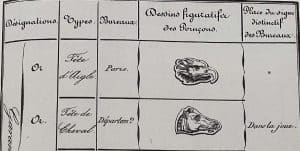 Désignations.
Types.
Bureaux.
Dessins figuratifs
des Poinçons.
Place du signe
distinctif
des Bureaux.
Or
Tête
d'Aigle
Paris.
"
Or.
Tête de
Cheval
Départem.ts
Dans la joue.